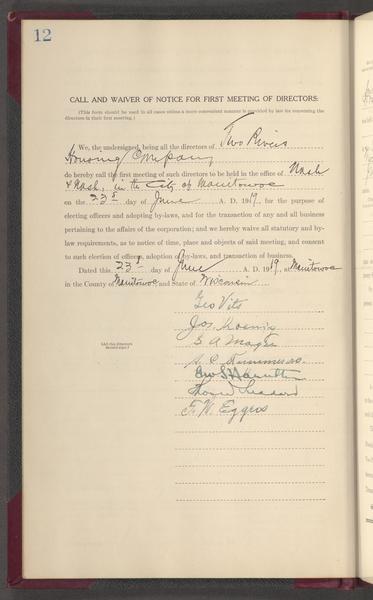 12
CALL AND WAIVER OF NOTICE FOR FIRST MEETING OF DIRECTORS:
(This form should be used in all cases unless a more convenient manner is provided by law for convening the
directors in their first meeting.)
We, the undersigned, being all the directors of Two Rivers
Housing Company
do hereby call the first meeting of such directors to be held in the office of Nash
& Nash, in the City of Manitowoc
on the 23d day of June A. D. 1919, for the purpose of
electing officers and adopting by-laws, and for the transaction of any and all business
pertaining to the affairs of the corporation; and we hereby waive all statutory and by-
law requirements, as to notice of time, place and objects of said meeting, and consent
to such election of officers, adoption of by-laws, and transaction of business.
Dated this 23d day of June A. D. 1919, at Manitowoc
in the County of Manitowoc and State of Wisconsin
Geo Vits
Jos. Koenig
(All the directors
should sign.)
F. W. Eggers